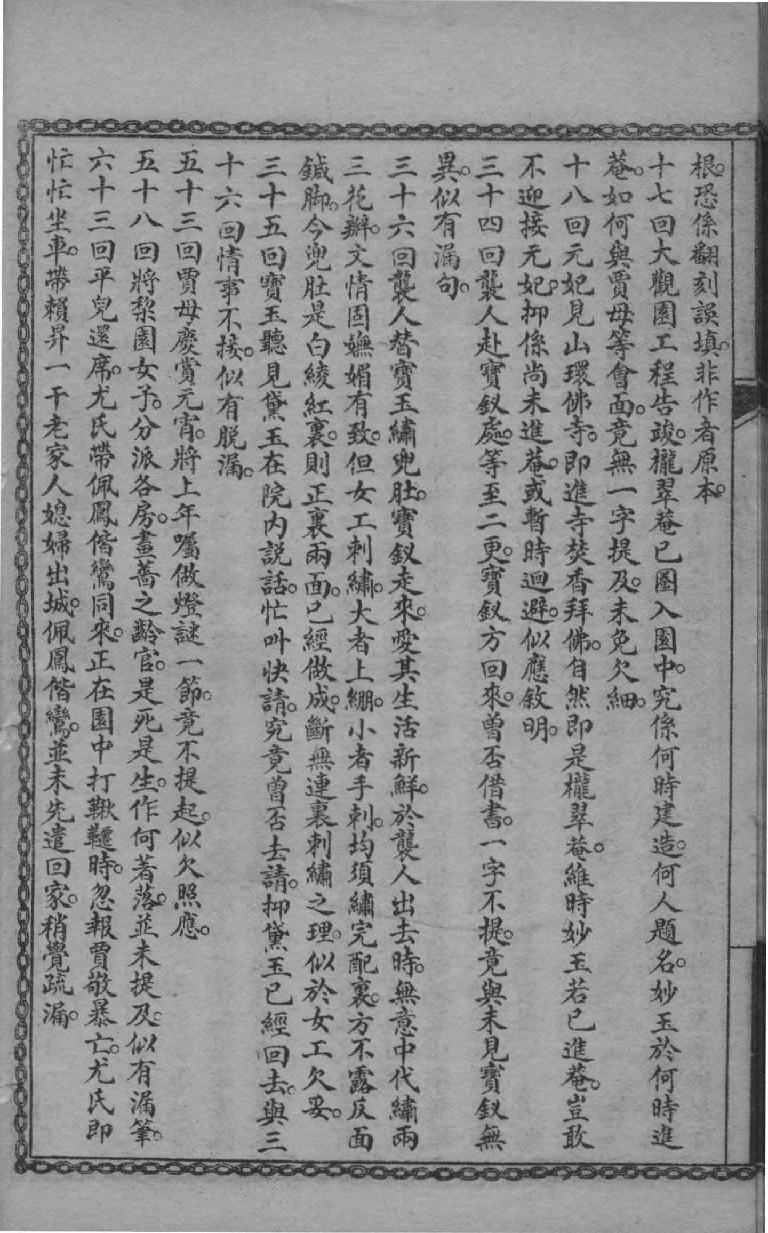 根。恐係翻刻誤填。非作者原本。
十七回大觀園工程告竣。櫳翠菴已圈入園中。究係何時建造。何人題名。妙玉於何時進
菴。如何與賈母等會面。竟無一字提及。未免欠細。
十八回元妃見山環佛寺。即進寺焚香拜佛。自然即是櫳翠菴。維時妙玉若已進菴。豈敢
不迎接元妃。抑係尚未進菴。或暫時迴避。似應敘明。
三十四回襲人赴寶釵處。等至二更。寶釵方回來。曾否借書。一字不提。竟與未見寶釵無
異。似有漏句。
三十六回襲人替寶玉繡兜肚。寶釵走來。愛其生活新鮮。於襲人出去時。無意中代繡兩
三花瓣。文情固嫵媚有致。但女工刺繡。大者上綳。小者手刺。均須繡完配裏。方不露反面
鍼脚。今兜肚是白綾紅裏。則正裏兩面。已經做成。斷無連裏刺繡之理。似於女工欠妥。
三十五回寶玉聽見黛玉在院內説話。忙叫快請。究竟曾否去請。抑黛玉已經回去。與三
十六回情事不接。似有脱漏。
五十三回賈母慶賞元宵。將上年囑做燈謎一節。竟不提起。似欠照應。
五十八回將梨園女子。分派各房。畫薔之齡官。是死是生。作何着落。並未提及。似有漏筆。
六十三回平兒還席。尤氏帶佩鳳偕鸞同來。正在園中打鞦韆時。忽報賈敬暴亡。尤氏即
忙忙坐車。帶賴昇一干老家人媳婦出城。佩鳳偕鸞。並未先遣回家。稍覺疏漏。